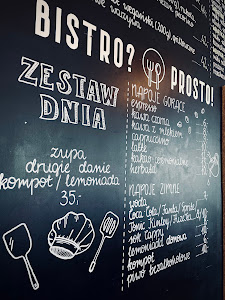 BISTRO? PROSTO!
ZESTAW
DNIA
zupa
drugie danie
kompot / lemoniada
35.-
NAPOJE GORĄCE
espresso
kawa czarna
kawa z mlekiem
cappuccino
latte
kakao
herbata
NAPOJE ZIMNE
woda
Coca Cola / Fanta / Sprite /
Tonic Kinley / Fuzetea
sok Cappy
lemoniada domowa
kompot
piwo bezalkoholowe